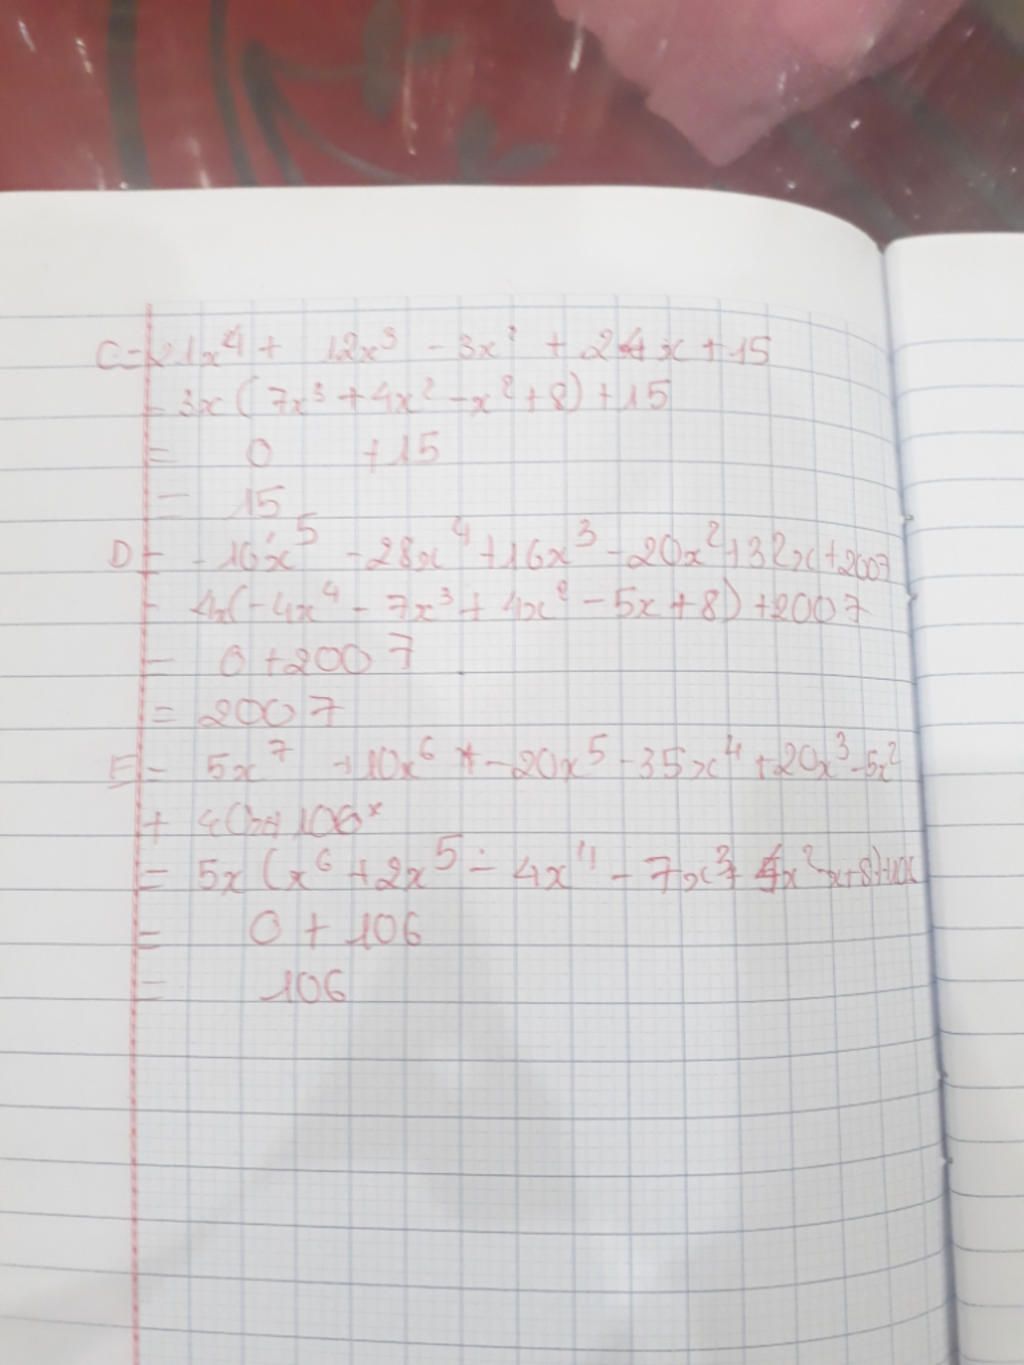 C = 21x⁴ + 12x³ - 3x² + 24x + 15
= 3x(7x³ + 4x² - x² + 8) + 15
= 0 + 15
= 15
D = -16x⁵ - 28x⁴ + 16x³ - 20x² + 32x + 2007
= 4x(-4x⁴ - 7x³ + 4x² - 5x + 8) + 2007
= 0 + 2007
= 2007
E = 5x⁷ + 10x⁶ + - 20x⁵ - 35x⁴ + 20x³ - 5x²
+ 40x + 106
= 5x(x⁶ + 2x⁵ - 4x⁴ - 7x³ + 4x² - x + 8) +
= 0 + 106
= 106